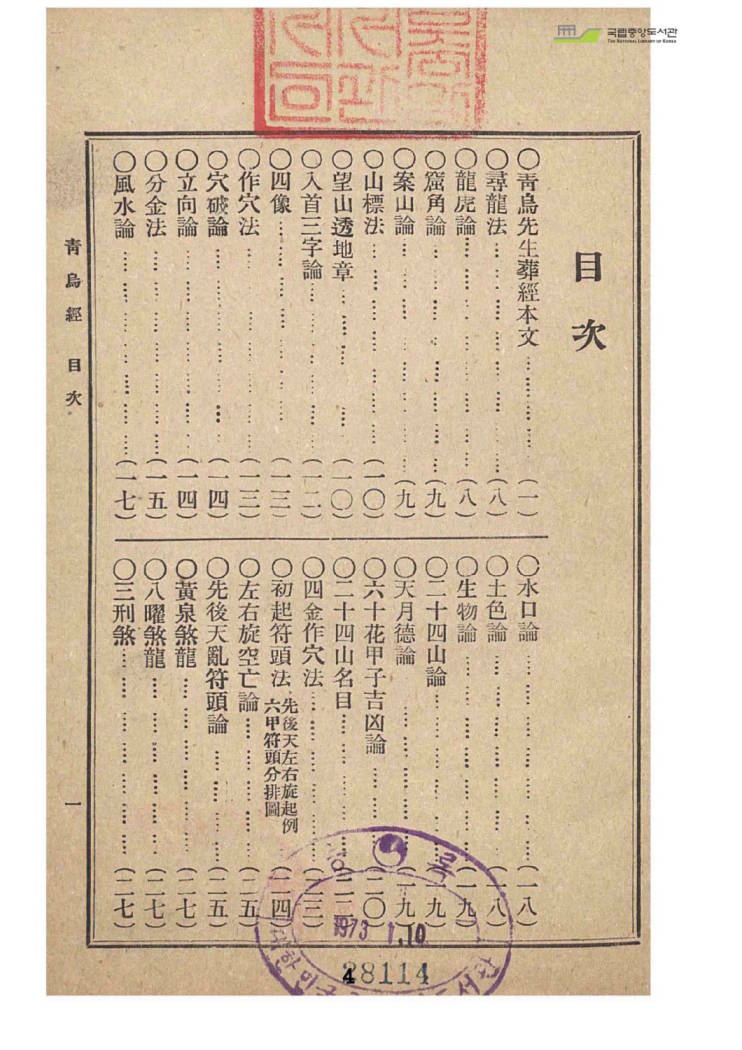 국립중앙도서관
THE NATIONAL LIBRARY OF KOREA
目次
○靑烏先生葬經本文 (一)
○尋龍法 (八)
○龍虎論 (八)
○窟角論 (九)
○案山論 (九)
○山標法 (一〇)
○望山透地章 (一〇)
○入首三字論 (一二)
○四像 (一三)
○作穴法 (一三)
○穴破論 (一四)
○立向論 (一四)
○分金法 (一五)
○風水論 (一七)
○水口論 (一八)
○土色論 (一八)
○生物論 (一九)
○二十四山論 (一九)
○天月德論 (一九)
○六十花甲子吉凶論 (二〇)
○二十四山名目 (二二)
○四金作穴法 (二三)
○初起符頭法 先後天左右旋起例 六甲符頭分排圖 (二四)
○左右旋空亡論 (二五)
○先後天亂符頭論 (二五)
○黃泉煞龍 (二七)
○八曜煞龍 (二七)
○三刑煞 (二七)
靑烏經 目次
一
1973 1.10
48114